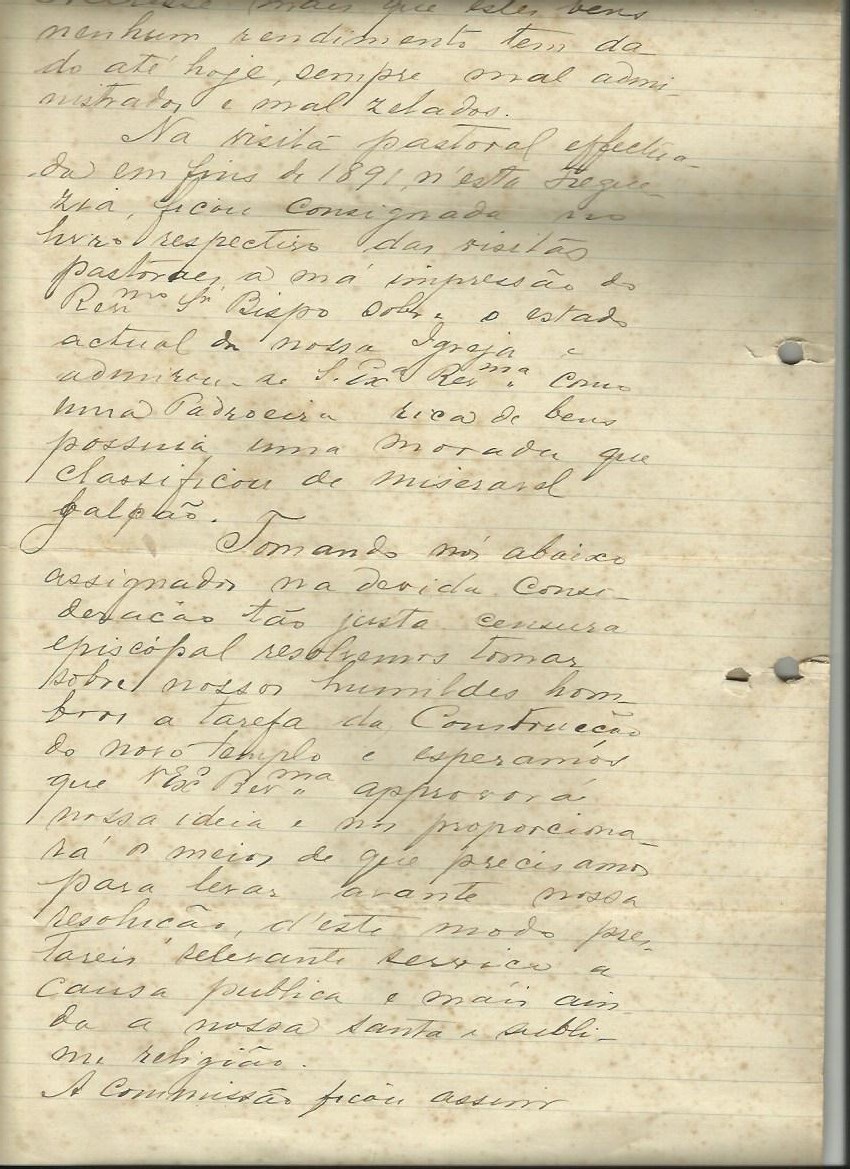 mais que estes bens
nenhum rendimento tem da
do até hoje, sempre mal admi-
nistrados e mal zelados.
Na visita pastoral effectua-
da em fins de 1891, n'esta Fregue-
zia, ficou consignada no
livro respectivo das visitas
pastoraes a má impressão do
Revmo Sr Bispo sobre o estado
actual da nossa Igreja e
admirou-se S. Exa Revma como
uma Padroeira rica de bens
possuia uma morada que
classificou de miseravel
galpão.
Tomando nós abaixo
assignados na devida consi-
deração tão justa censura
episcopal resolvemos tomar
sobre nossos humildes hom-
bros a tarefa da Construcção
do novo templo e esperamos
que V Exa Revma approvará
nossa ideia e nos proporciona-
rá os meios de que precisamos
para levar avante nossa
resolução, d'este modo pres-
tareis relevante serviço a
causa publica e mais ain
da a nossa santa e subli-
me religião.
A Commissão ficou assim